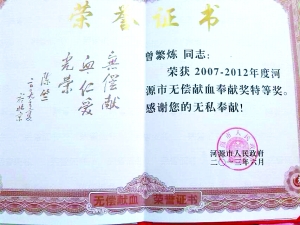 荣誉证书
曾繁炼 同志：
荣获2007-2012年度河
源市无偿献血奉献奖特等奖。
感谢您的无私奉献！
河源市人民政府
二〇一三年六月
無偿献
血仁爱
光荣
无偿献血 荣誉证书